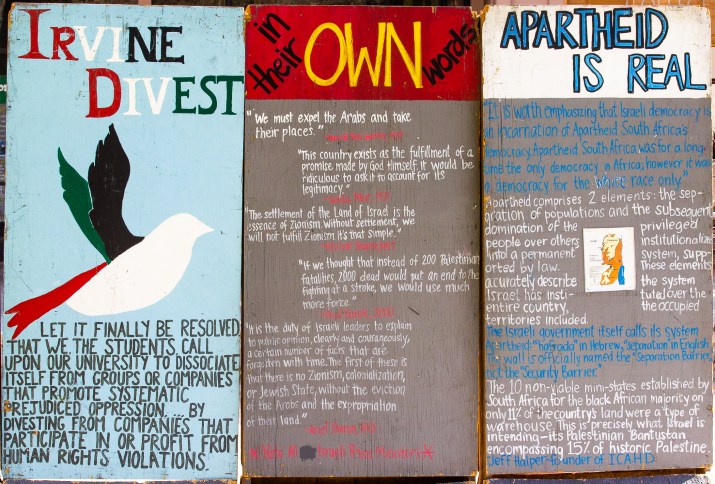 IRVINE
DIVEST
LET IT FINALLY BE RESOLVED
THAT WE, THE STUDENTS, CALL
UPON OUR UNIVERSITY TO DISSOCIATE
ITSELF FROM GROUPS OR COMPANIES
THAT PROMOTE SYSTEMATIC
PREJUDICED OPPRESSION... BY
DIVESTING FROM COMPANIES THAT
PARTICIPATE IN OR PROFIT FROM
HUMAN RIGHTS VIOLATIONS.
in
their OWN words
"We must expel the Arabs and take
their places."
"This country exists as the fulfillment of a
promise made by God Himself. It would be
ridiculous to ask it to account for its
legitimacy."
"The settlement of the Land of Israel is the
essence of Zionism. Without settlement, we
will not fulfill Zionism. It's that simple."
"If we thought that instead of 200 Palestinian
fatalities, 2000 dead would put an end to the
fighting at a stroke, we would use much
more force."
"It is the duty of Israeli leaders to explain
to public opinion, clearly and courageously,
a certain number of facts that are
forgotten with time. The first of these is
that there is no Zionism, colonialization,
or Jewish State, without the eviction
of the Arabs and the expropriation
of their land."
APARTHEID
IS REAL
"It is worth emphasizing that Israeli democracy is
an incarnation of Apartheid South Africa's
democracy. Apartheid South Africa was for a long
time the only democracy in Africa; however it was
a democracy for the white race only."
Apartheid comprises 2 elements: the sep-
gration of populations and the subsequent
domination of the privileged
people over others institutionalized
into a permanent system, supp-
orted by law. These elements
accurately describe the system
Israel has insti- tuted over the
entire country, the occupied
territories included.
The Israeli government itself calls its system
Apartheid: "hafrada" in Hebrew, "separation" in English
wall is officially named the "Separation Barrier,"
not the "Security Barrier."
The 10 non-viable mini-states established by
South Africa for the black African majority on
only 11% of the country's land were a type of
warehouse. This is precisely what Israel is
intending – its Palestinian "Bantustan
encompassing 15% of historic Palestine.
Jeff Halper-founder of ICAHD